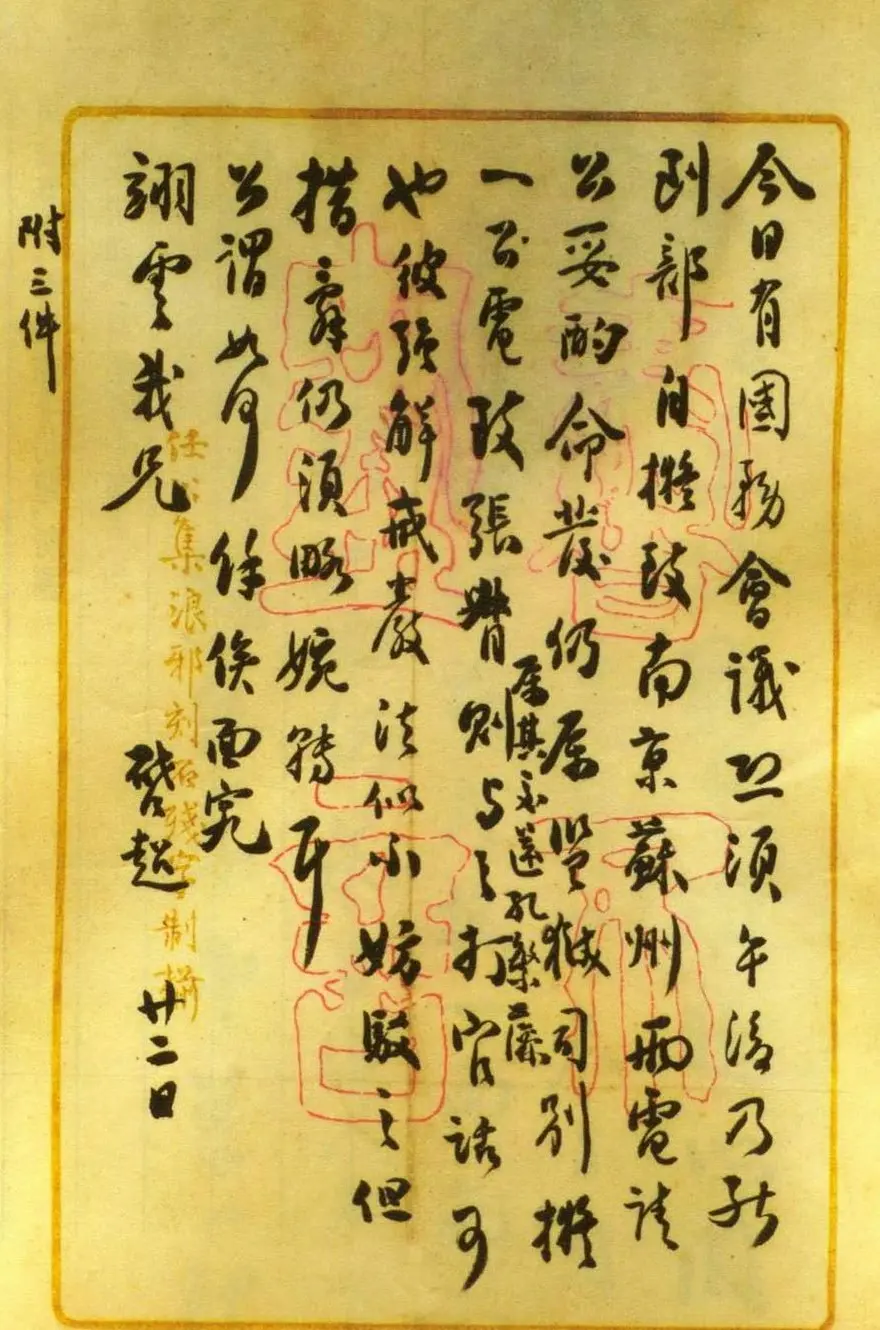 今日有國務會議恐須午後乃能
到部自擬致南京蘇州兩電請
公妥酌命發仍屬監獄司別擬
一公電致張督則與之打官話可
屬其承送孔繁藻
也彼援解戒嚴法似不妨駁之但
措辭仍須略婉轉耳
公謂如何餘俟面究
翊雲我兄
啓超 廿二日
附三件
任公集瑯邪刻石殘字製箋